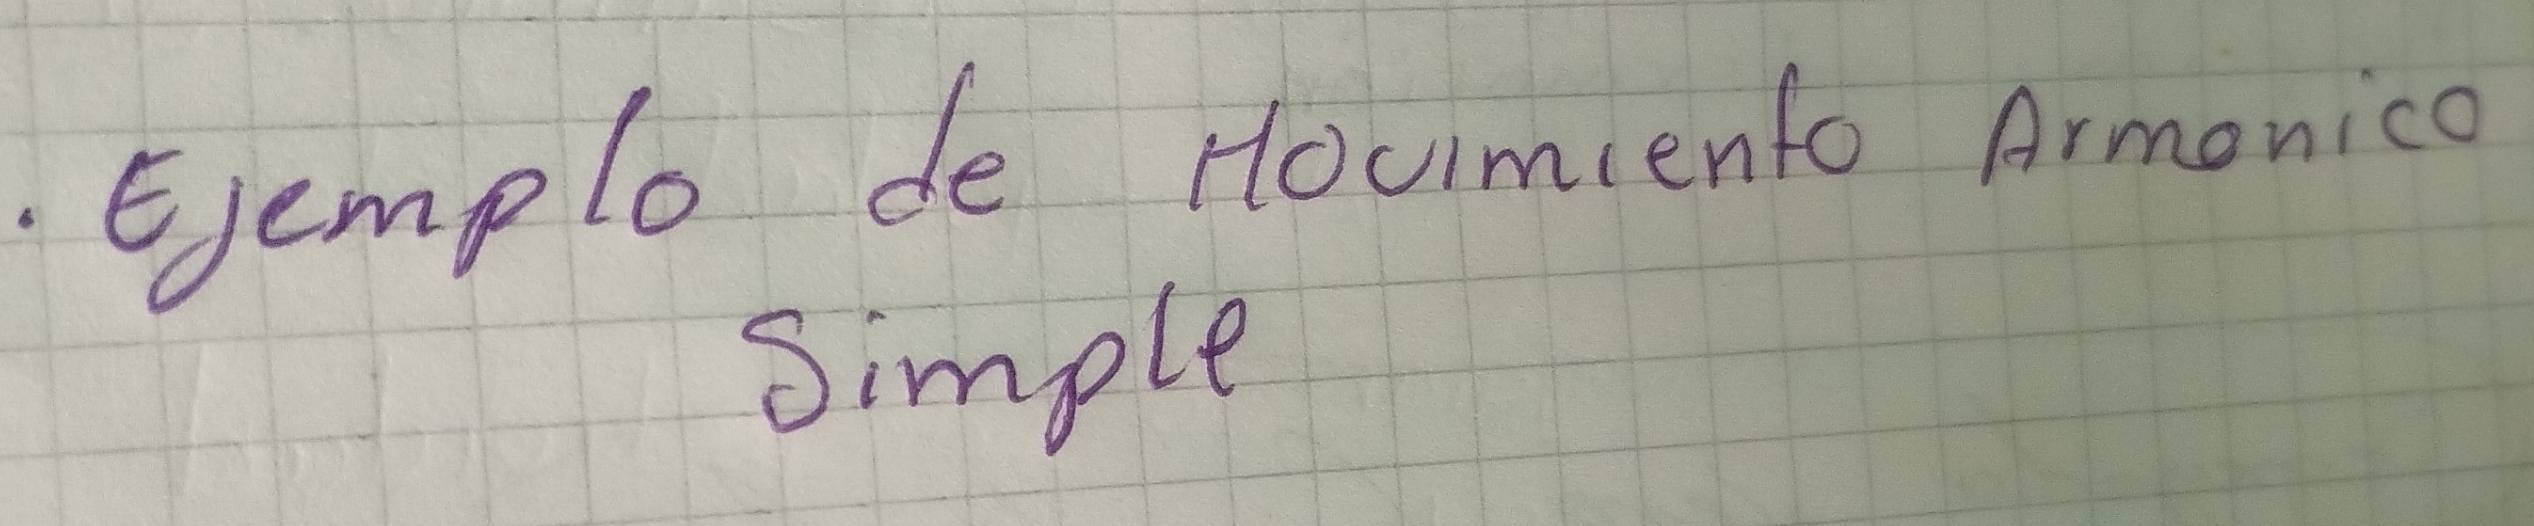 . Ejemplo de Movimiento Armonico
Simple